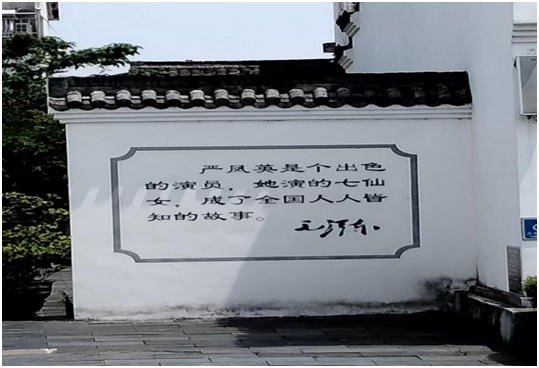 严凤英是个出色
的演员，她演的七仙
女，成了全国人人皆
知的故事。